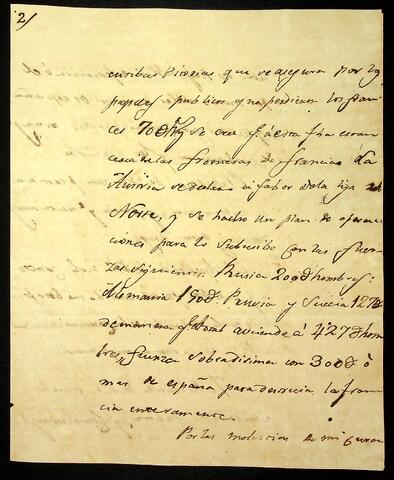 2/
que se asegura por los
papeles publicos que perdieron los fran
ces 70d y se cree q.e á esta fha estan
cerca de las fronteras de francia. La
Austria se declaro á fabor de la liga del
Norte, y se hecho un plan de opera
ciones para lo subcesibo con las fuer
zas siguientes: Rusia 200d hombres:
Alemania 150d. Prusia y Suecia 127d
de manera q.e el total asciende á 427d hom
bres, fuerza con 300d ó
mas de españa para destruir la fran
cia enteramente.
Por las molestias de mi